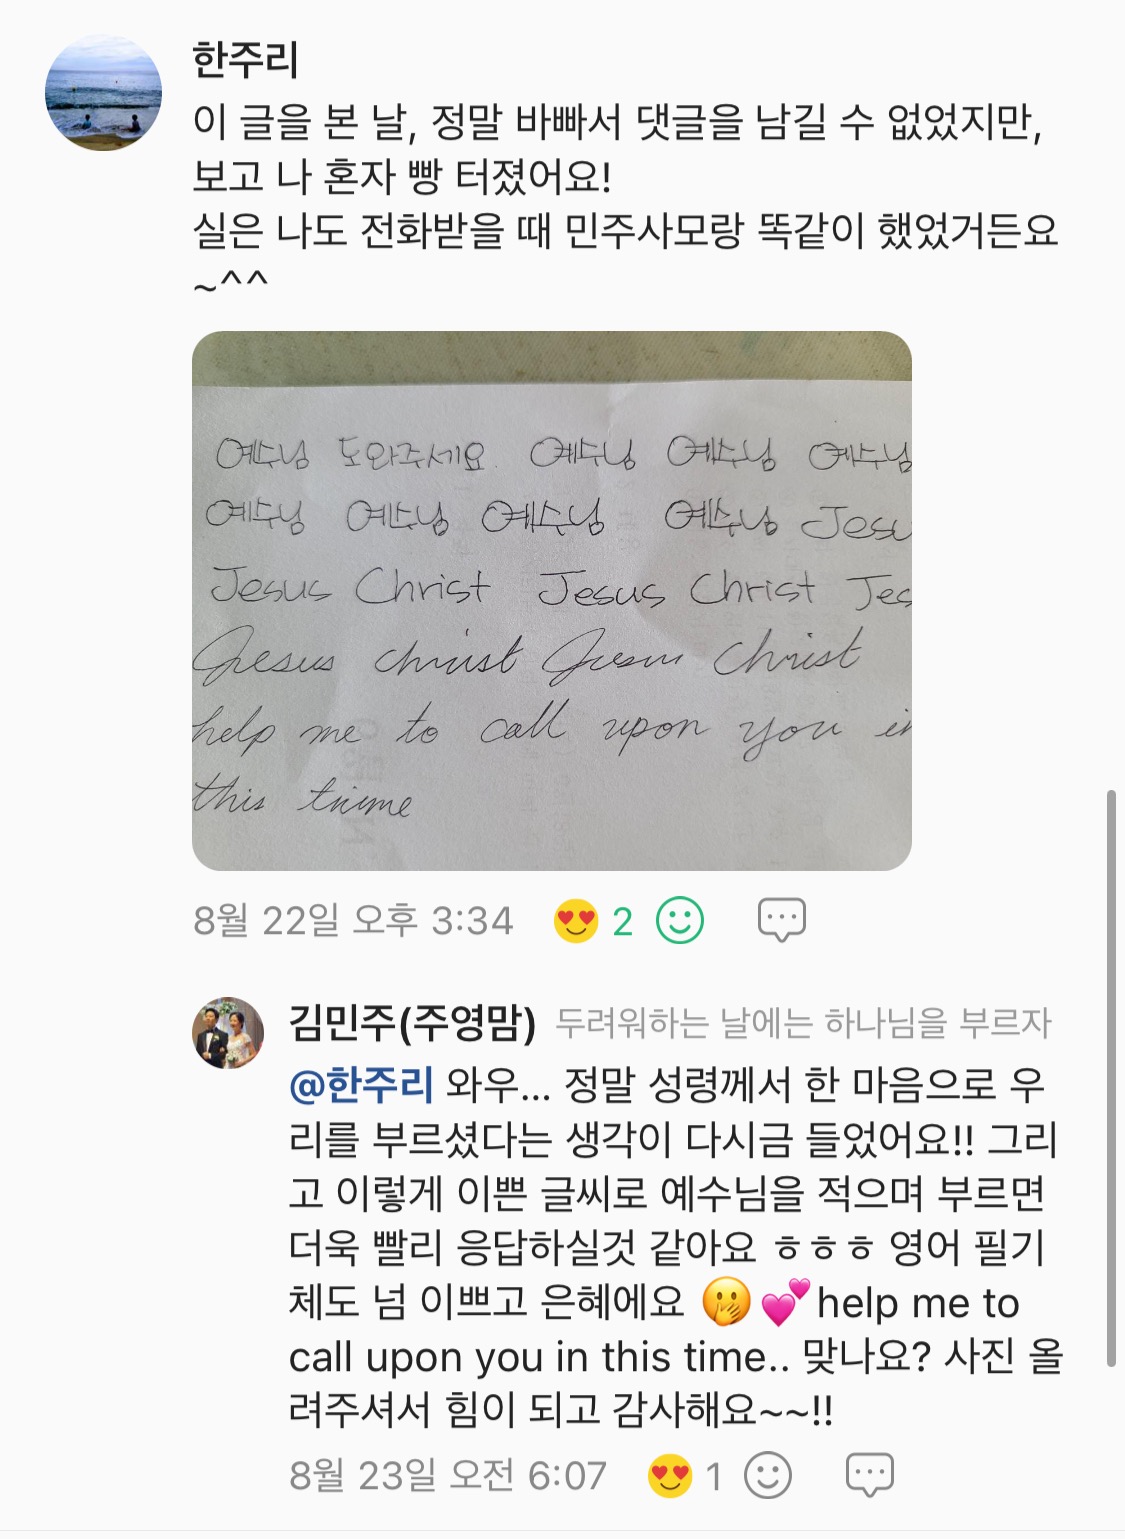 한주리
이 글을 본 날, 정말 바빠서 댓글을 남길 수 없었지만,
보고 나 혼자 빵 터졌어요!
실은 나도 전화받을 때 민주사모랑 똑같이 했었거든요
~^^
예수님 도와주세요 예수님 예수님 예수님
예수님 예수님 예수님 예수님 Jesu
Jesus Christ Jesus Christ Jes
Jesus christ Jesus Christ
help me to call upon you in
this time
8월 22일 오후 3:34 2
김민주(주영맘) 두려워하는 날에는 하나님을 부르자
@한주리 와우... 정말 성령께서 한 마음으로 우
리를 부르셨다는 생각이 다시금 들었어요!! 그리
고 이렇게 이쁜 글씨로 예수님을 적으며 부르면
더욱 빨리 응답하실것 같아요 ㅎㅎㅎ 영어 필기
체도 넘 이쁘고 은혜에요 🤭💕help me to
call upon you in this time.. 맞나요? 사진 올
려주셔서 힘이 되고 감사해요~~!!
8월 23일 오전 6:07 1